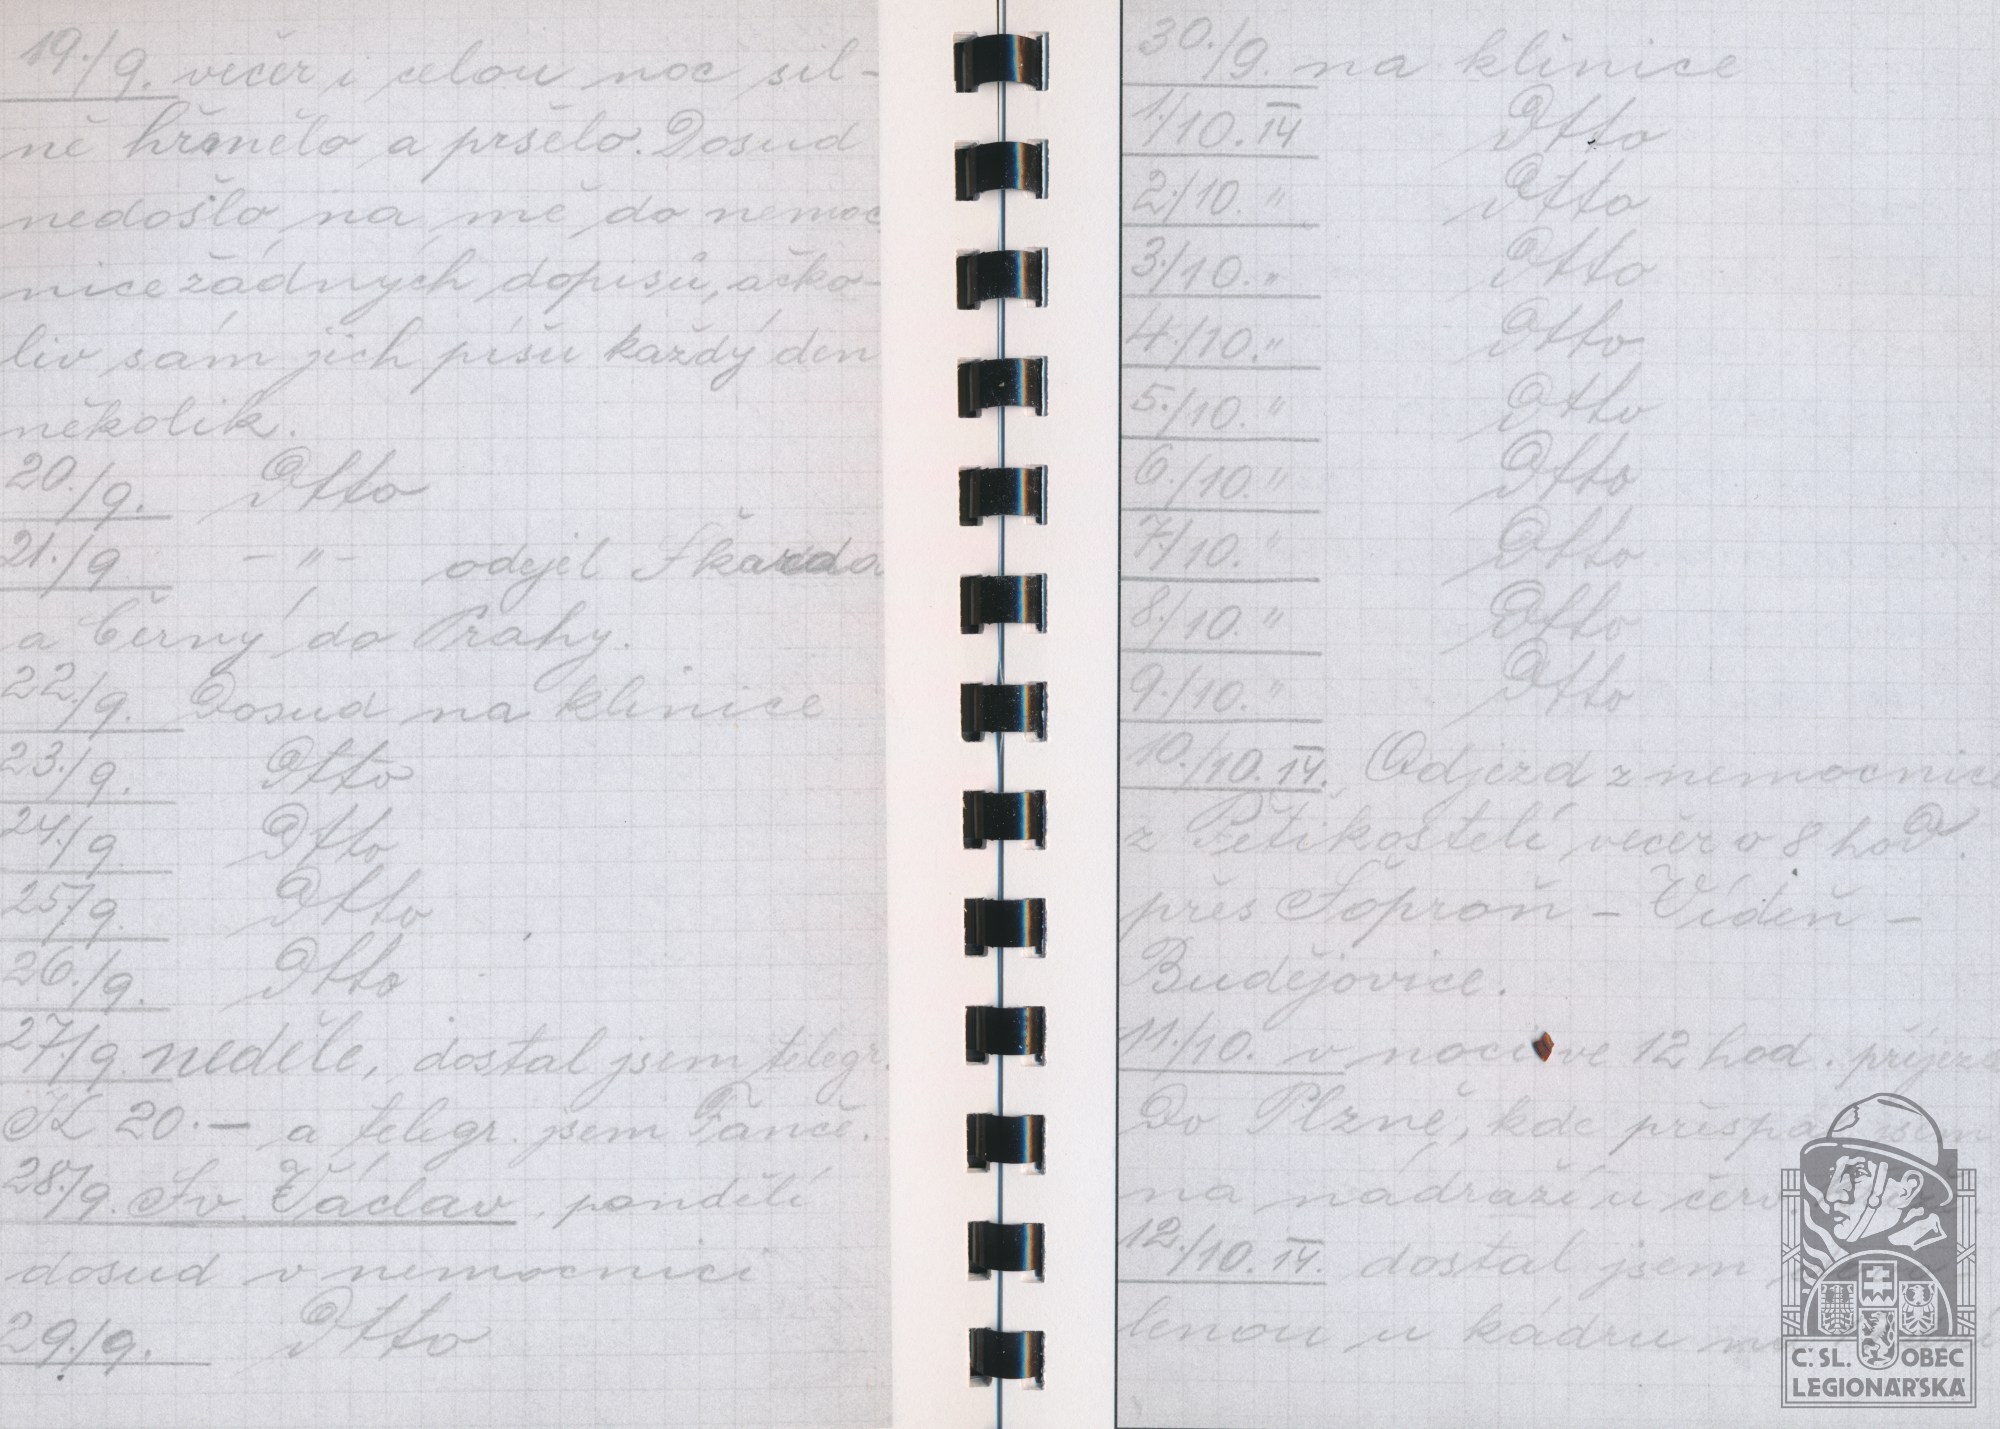 19./9. večer i celou noc sil-
ně hřmělo a pršelo. Dosud
nedošlo na mě do nemoc
nice žádných dopisů, ačko-
liv sám jich píšu každý den
několik.
20./9. Otto
21./9. – " – odejel Škarda
a Černý do Prahy.
22./9. Dosud na klinice
23./9. Otto
24./9. Otto
25./9. Otto
26./9. Otto
27./9. neděle, dostal jsem telegr.
K 20.– a telegr. jsem Fanče.
28./9. Sv. Václav, pondělí
dosud v nemocnici
29./9. Otto
30./9. na klinice
1./10. 14 Otto
2./10. " Otto
3./10. " Otto
4./10. " Otto
5./10. " Otto
6./10. " Otto
7./10. " Otto
8./10. " Otto
9./10. " Otto
10./10. 14. Odjezd z nemocnice
z Pětikostelí večer o 8 hod.
přes Šoproň – Vídeň –
Budějovice.
11./10. v noci ve 12 hod. příjezd
Do Plzně, kde přespal jsem
na nádraží u červ.
12./10. 14. dostal jsem
lenou u kádru
Č. SL. OBEC
LEGIONÁŘSKÁ